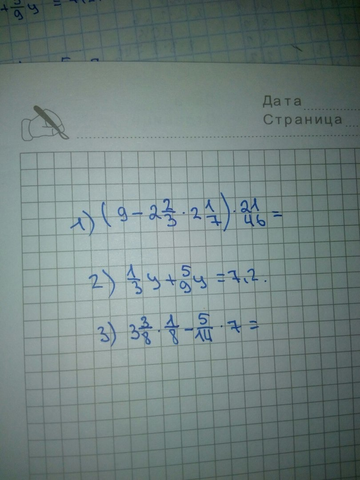 +5/9y = 7,2
Дата
Страница
1) (9 - 2 2/3 · 2 1/7) · 21/46 =
2) 1/3 y + 5/9 y = 7,2.
3) 3 3/8 · 1/8 - 5/14 · 7 =